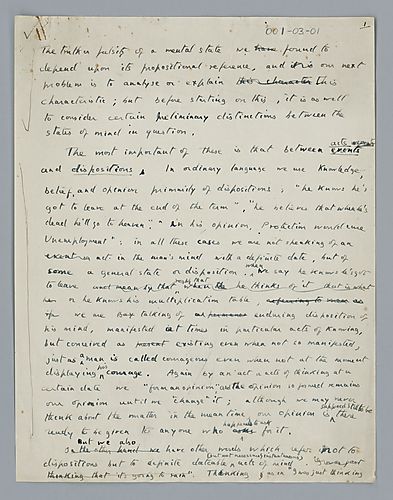 001-03-01
1
The truth or falsity of a mental state we have found to
depend upon its propositional reference, and it is our next
problem is to analyse or explain this character this
characteristic; but before starting on this, it is as well
to consider certain preliminary distinctions between the
states of mind in question.
The most important of these is that between events acts
and dispositions. In ordinary language we use knowledge
belief and opinion primarily of dispositions; "he knows he's
got to leave at the end of the term", "he believes that when he's
dead he'll go to heaven", "in his opinion, Protection would cure
Unemployment": in all these cases we are not speaking of an
event or act in the man's mind with a definite date, but of
some a general state or disposition; when we say he knows he's got
to leave and mean by that when he thinks of it that is what
he knows his multiplication table,
we are talking of enduring disposition of
his mind, manifested at times in particular acts of knowing,
but conceived as existing even when not so manifested,
just as a man is called courageous even when not at the moment
displaying his courage. Again by an act or acts of thinking at a
certain date we "form an opinion" and the opinion so formed remains
our opinion until we 'change it'; although we may never
think about the matter in the meantime our opinion is there supposed to be
ready to be given to anyone who happens to ask for it.
But we also
On the other hand we have other words which refer not to
dispositions but to definite dateable acts of mind
(but not necessarily instantaneous)
thinking that "it's going to rain". Thinking just thinking